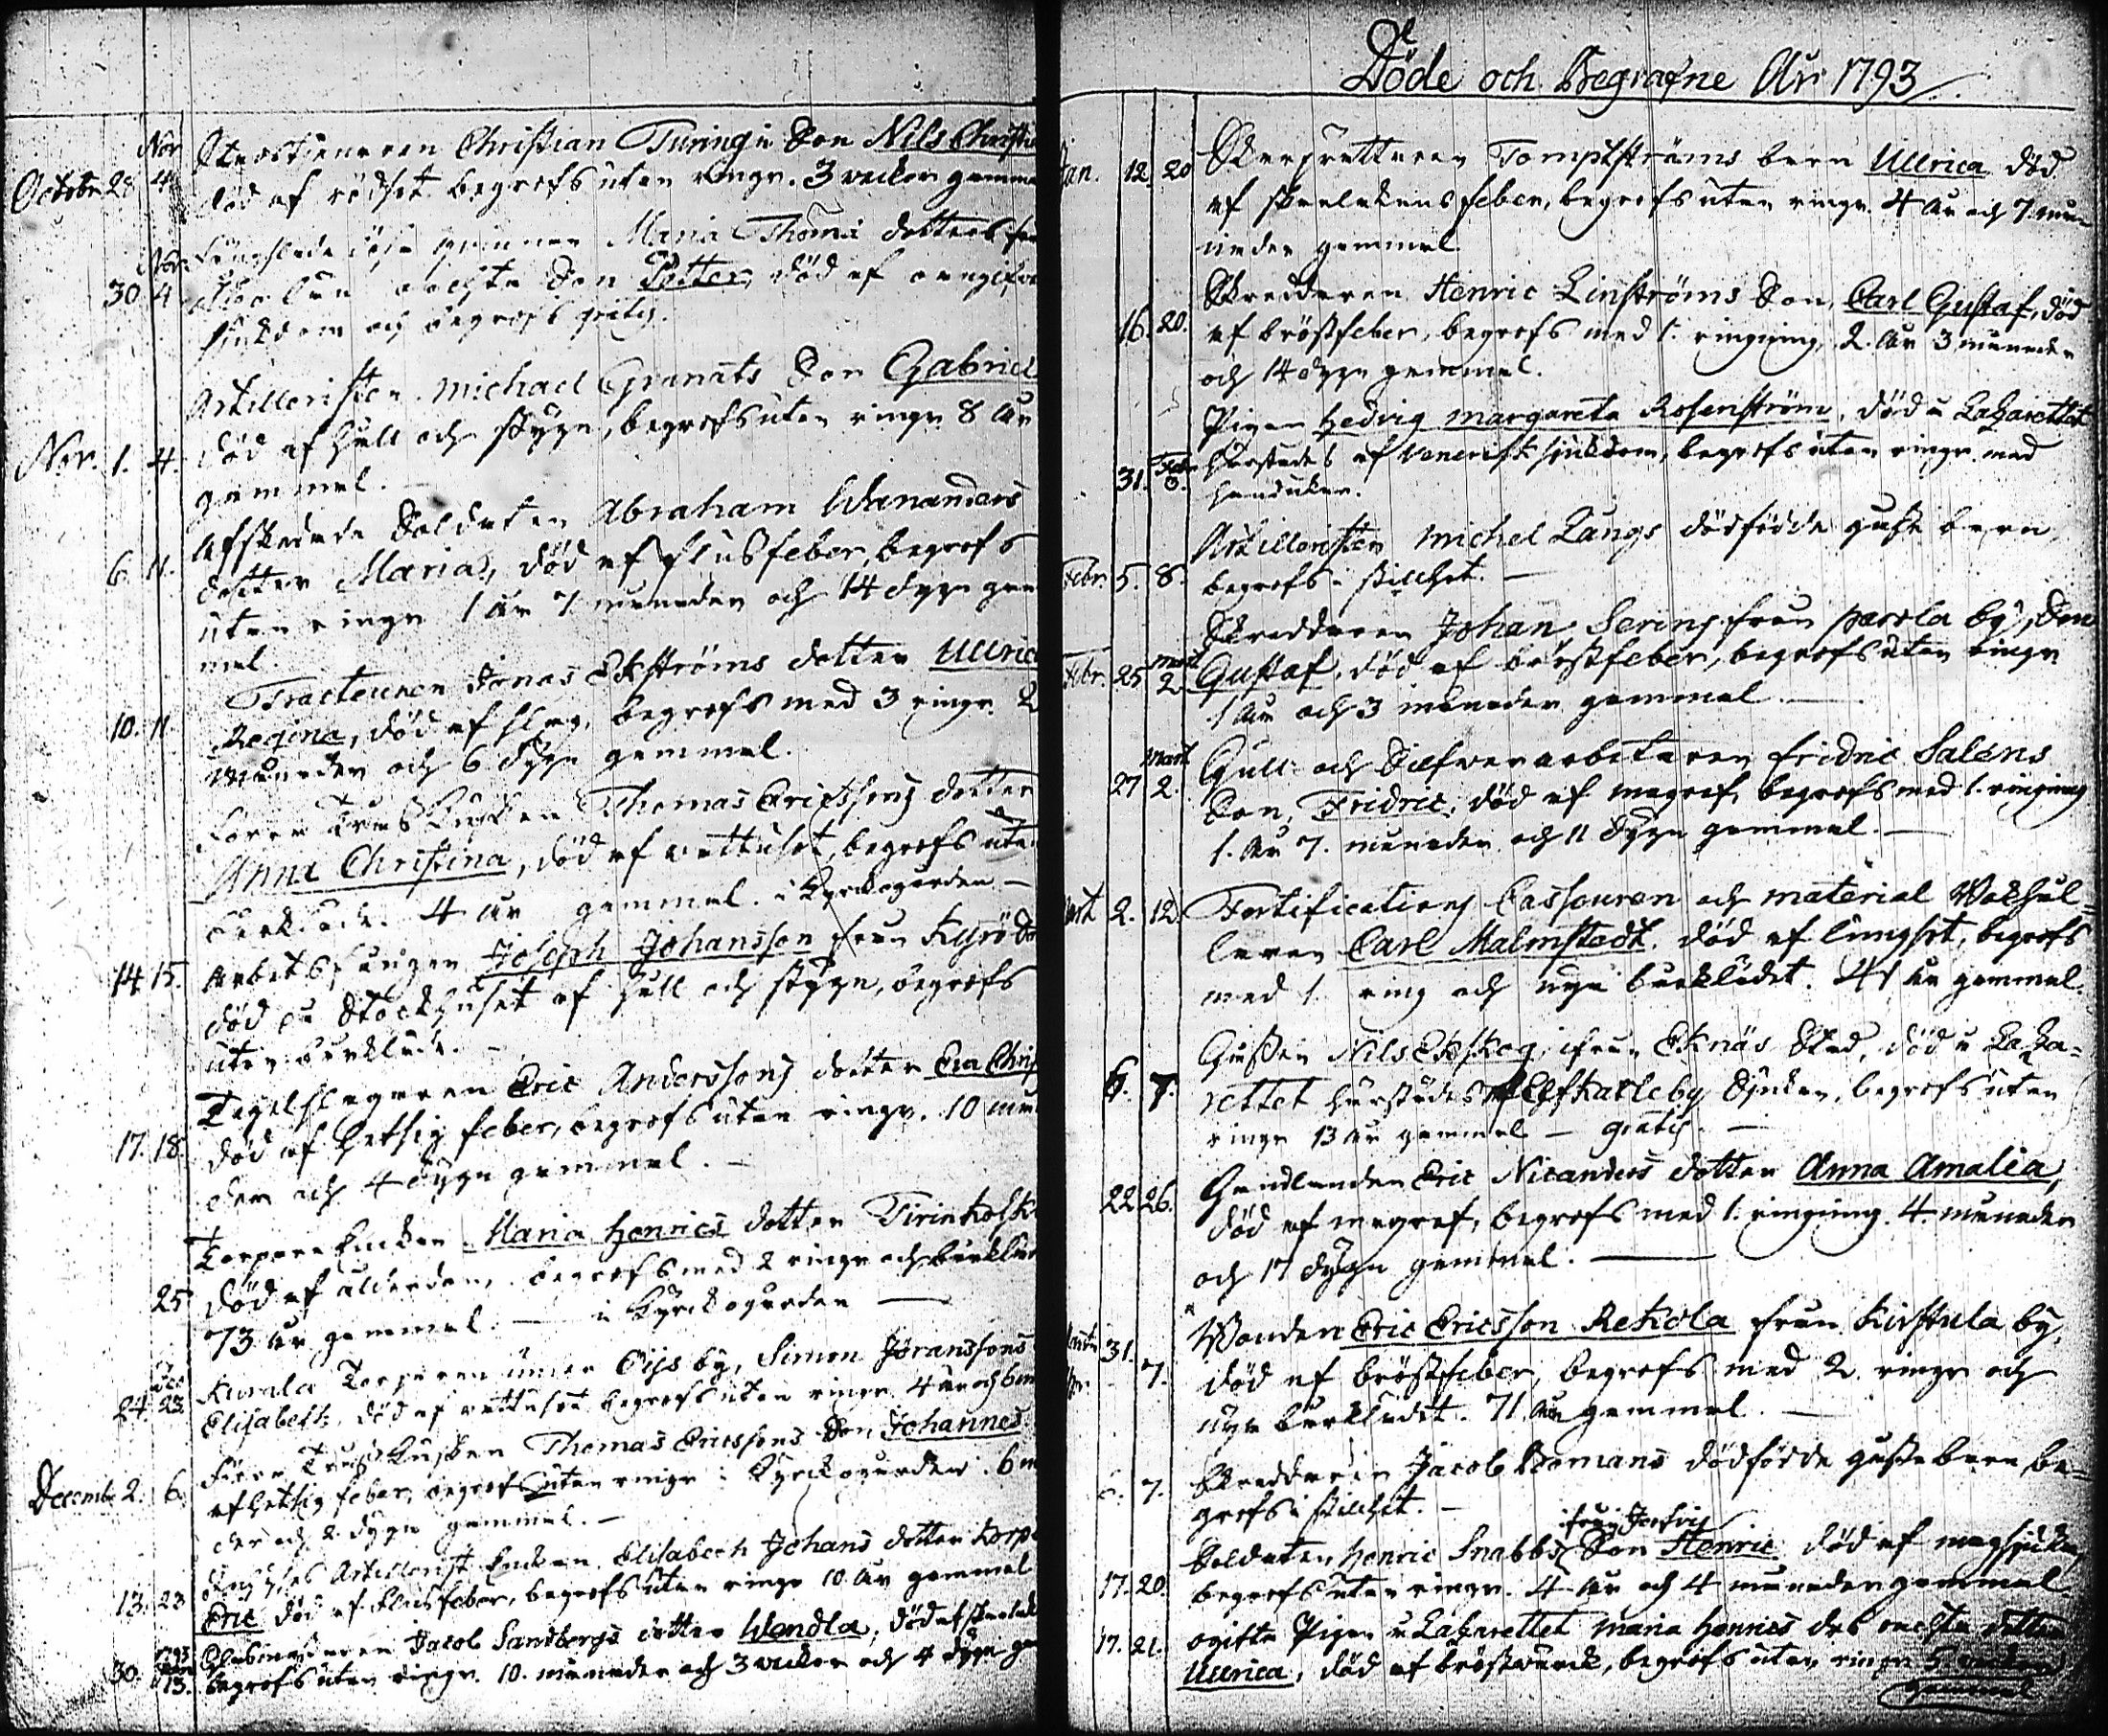 Nov
October 28. 4. Christian Turings Son Nils Christi
död af rödsot begrofs utan ringn. 3 veckor gamma
Maria Thoma dotters
Nov.
30. 4. oächta Son Petter, död af
siukdom och begrofs gratis.
Artilleristen Michael Granats Son Gabriel
Nov. 1. 4. död af håll och styng, begrofs utan ringn 8 år
gammal.
Afskedade Soldaten Abraham Wanandars
6. 11. dotter Maria, död af flusfeber, begrofs
utan ringn 1 år 7 månader och 14 dygn gam
mal.
Tracteuren Jonas Ekströms dotter Ulric
10. 11. Regina, död af slag, begrofs med 3 ringn. 2
månader och 6 dygn gammal.
Thomas Ericssons dotter
Anna Christina, död af vattusot, begrofs utan
bårkläde. 4 år gammal. i Kyrckogården —
14. 15. Arbetsfången Joseph Johansson från Kyrö
död på Stockhuset af håll och styng, begrofs
utan bårkläde. —
Tegelslagaren Eric Anderssons dotter Eva Chris
17. 18. död af hetsig feber, begrofs utan ringn. 10 mån
der och 4 dygn gammal. —
Torpare Enckan Maria Henrics dotter
25 död af ålderdom, begrofs med 2 ringn och bårkläd
73 år gammal. — i Kyrckogården —
Torparen under by, Simon Jöranssons
24. 23. Elisabeth, död af vattusot begrofs utan ringn 4 år och 6 m
Thomas Ericssons Son Johannes
Decemb. 2. 6. af hetsig feber, begrofs utan ringn i Kyrckogården. 6 m
der och 2 dygn gammal. —
Artillerist Enckan Elisabeth Johans dotter
13. 23 Eric död af flusfeber, begrofs utan ringn 10 år gammal
1793
Jacob Sandbergs dotter Wendla, död af
30. 13. begrofs utan ringn. 10. månader och 3 veckor och 4 dygn ga
Döde och Begrafne År 1793.
Jan. 12. 20 Skarprättaren Tomptströms barn Ullrica död
af feber, begrofs utan ringn. 4 år och 7 må=
nader gammal
Skreddaren Henric Linströms Son, Carl Gustaf, död
16. 20. af bröstfeber, begrofs med 1. ringning, 2. år 3 månader
och 14 dygn gammal.
Pigan Hedvig Margareta Rosenström, död å Lazarettet
31. Febr härstädes af Venerisk siukdom, begrofs utan ringn. med
Artilleristen Michel Långs dödfödde gosse barn
Febr. 5. 8. begrofs i stillhet. —
Skreddaren Johan Serings från Parola by, Son
mart
Febr. 25 2. Gustaf, död af bröstfeber, begrofs utan ringn
1 år och 3 månader gammal —
Mart
27 2. Gull och Silfver arbetaren Fridric Saléns
Son, Fridric, död af magref, begrofs med 1. ringning
1. år 7. månader och 11 dygn gammal. —
Mart 2. 12. Fortifications Casseuren och material Wakthål=
laren Carl Malmstedt, död af lungsot, begrofs
med 1. ring och nya bårklädet. 41 år gammal.
Gossen Nils Ekskog, ifrån Eknäs Stad, död å Laza=
6. 7. rettet härstädes af Elfkarleby Sjukan, begrofs utan
ringn 13 år gammal — gratis. —
22. 26. Handlanden Eric Nicanders dotter Anna Amalia,
död af magref, begrofs med 1. ringning. 4. månader
och 17 dygn gammal. —
31. Bonden Eric Ericsson Rekola från Kirstula by,
7. död af bröstfeber, begrofs med 2. ringn och
nya bårklädet. 71 år gammal. —
7. Skreddaren Jacob Bomans dödfödde gosse barn, be=
grofs i stillhet. —
Soldaten Henric Snabbs Son Henric, död af magsjuka,
17. 20. begrofs utan ringn. 4 år och 4 månader gammal
17. 21. ogifta Pigan å Lazarettet Maria Henrics des oächta dotter
Ullrica, död af bröstwärck, begrofs utan ringn 5 veckor
gammal